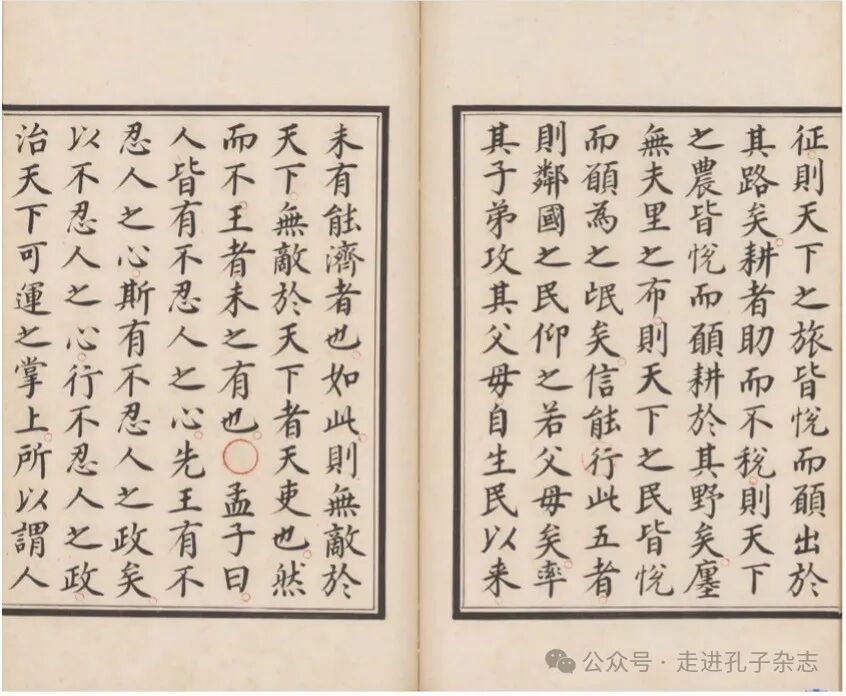 征則天下之旅皆悅而願出於
其路矣耕者助而不稅則天下
之農皆悅而願耕於其野矣廛
無夫里之布則天下之民皆悅
而願為之氓矣信能行此五者
則鄰國之民仰之若父母矣率
其子弟攻其父母自生民以来
未有能濟者也如此則無敵於
天下無敵於天下者天吏也然
而不王者未之有也○孟子曰
人皆有不忍人之心先王有不
忍人之心斯有不忍人之政矣
以不忍人之心行不忍人之政
治天下可運之掌上所以謂人
公众号·走进孔子杂志